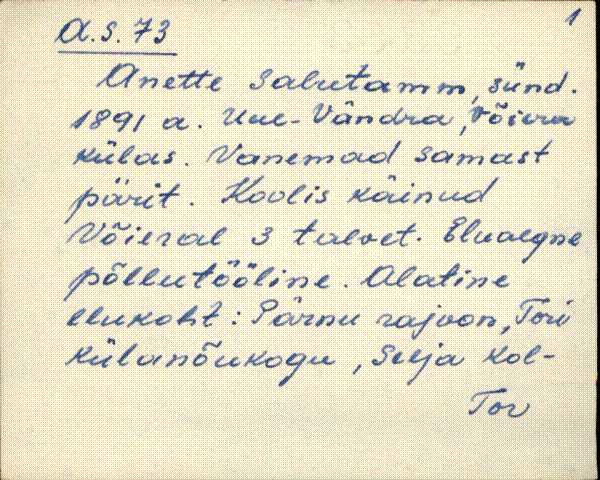 1
A.S. 73
Anette Salutamm, sünd.
1891 a. Uue-Vändra, Võiera
külas. Vanemad samast
pärit. Koolis käinud
Võieral 3 talvet. Eluaegne
põllutööline. Alatine
elukoht: Pärnu rajoon, Tori
külanõukogu, Selja kol-
Tor